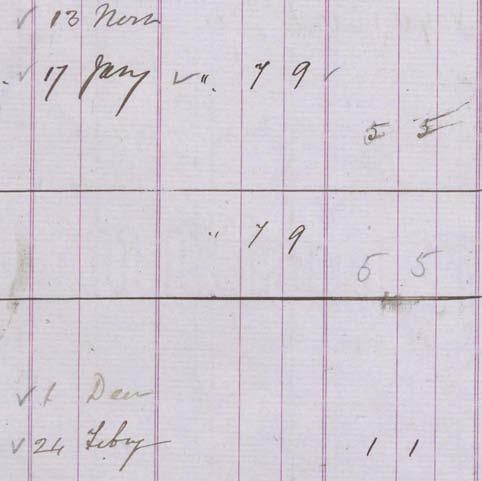 ✓ 13 Novr
✓ 17 Jany ✓ " 7 9 ✓
5 5
" 7 9
5 5
✓ 1 Decr
✓ 24 Feby 1 1